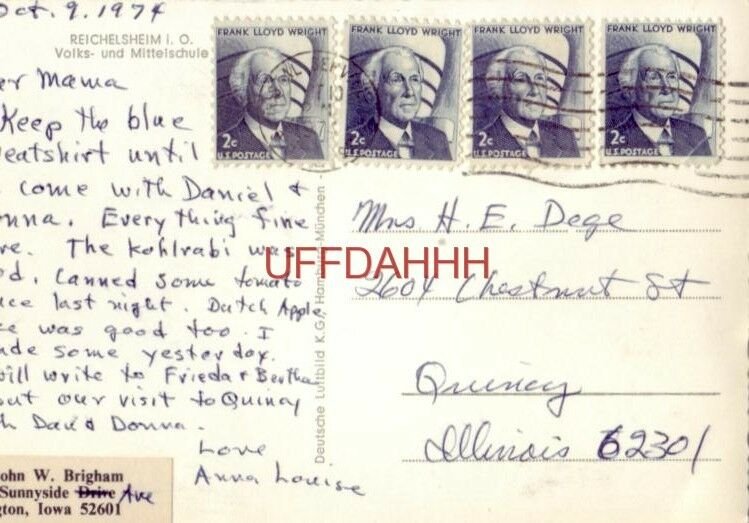 Oct. 9, 1974
REICHELSHEIM I. O.
Volks- und Mittelschule
er Mama
Keep the blue
eatshirt until
come with Daniel &
onna. Everything fine
re. The Kohlrabi was
od, Canned some tomato
uce last night. Dutch Apple
ke was good too. I
ade some yesterday.
will write to Frieda & Bertha
out our visit to Quincy
th Dav & Donna.
Love
Anna Louise
ohn W. Brigham
Sunnyside Drive Ave
gton, Iowa 52601
Deutsche Luftbild K.G., Hamburg-München
FRANK LLOYD WRIGHT
2c
U.S. POSTAGE
FRANK LLOYD WRIGHT
2c
U.S. POSTAGE
FRANK LLOYD WRIGHT
2c
U.S. POSTAGE
FRANK LLOYD WRIGHT
2c
U.S. POSTAGE
Mrs H. E. Dege
2604 Chestnut St
Quincy
Illinois 62301
UFFDAHHH